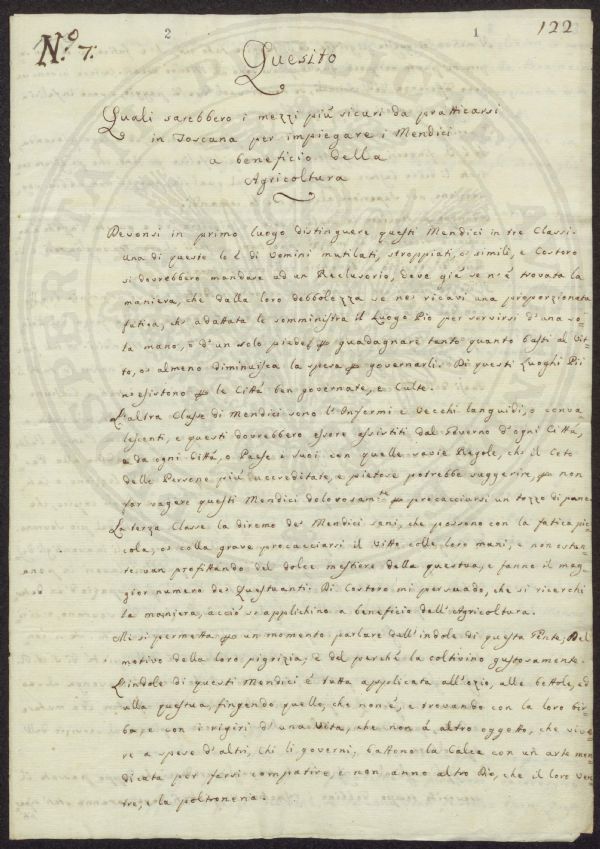 N.º 7. 2 1 122
Quesito
Quali sarebbero i mezzi piu' sicuri da pratticarsi
in Toscana per impiegare i Mendici
a beneficio della
Agricoltura
Devonsi in primo luogo distinguere questi Mendici in tre Classi.
Una di queste le è di Uomini mutilati, stroppiati, o simili, e Costoro
si dovrebbero mandare ad un Reclusorio, dove già se n'è trovata la
maniera, che dalla loro debbolezza se ne ricavi una proporzionata
fatica, che adattata le somministra il Luogo Pio per servirsi d'una so-
la mano, o d'un solo piede, guadagnare tanto quanto basti al Vit-
to, o almeno diminuisca la spesa governarli. Di questi Luoghi Pii
n'esistono le Città ben governate, e Culte.
L'altra Classe di Mendici sono l'Infermi e Vecchi languidi, o conva-
lescenti, e questi dovrebbero essere assistiti dal Governo d'ogni Città,
e da ogni Città, o Paese i suoi con quelle savie Regole, che il Ceto
delle Persone piu' accreditate, e pietose potrebbe suggerire, non
far vagare questi Mendici dolorosam.te procacciarsi un tozzo di pane
La terza Classe la diremo de' Mendici sani, che possono con la fatica pic-
cola, o colla grave procacciarsi il Vitto colle loro mani, e non ostan-
te van profittando del dolce mestiere della questua, e fanno il mag-
gior numero de' Questuanti. Di Costoro mi persuado, che si ricerchi
la maniera, acciò si applichino a beneficio dell'Agricoltura.
Mi si permetta un momento parlare dell'indole di questa Gente, Del
motivo della loro pigrizia, e del perchè la coltivino gustosamente.
L'indole di questi Mendici è tutta applicata all'ozio, alle bettole, ed
alla questua, fingendo quello, che non è, e trovando con la loro bir-
ba, e con i rigiri d'una Vita, che non à altro oggetto, che vive-
re a spese d'altri, chi li governi, battono la Calca con un arte men-
dicata per farsi compatire, e non anno altro Dio, che il loro ven-
tre, e la poltroneria.